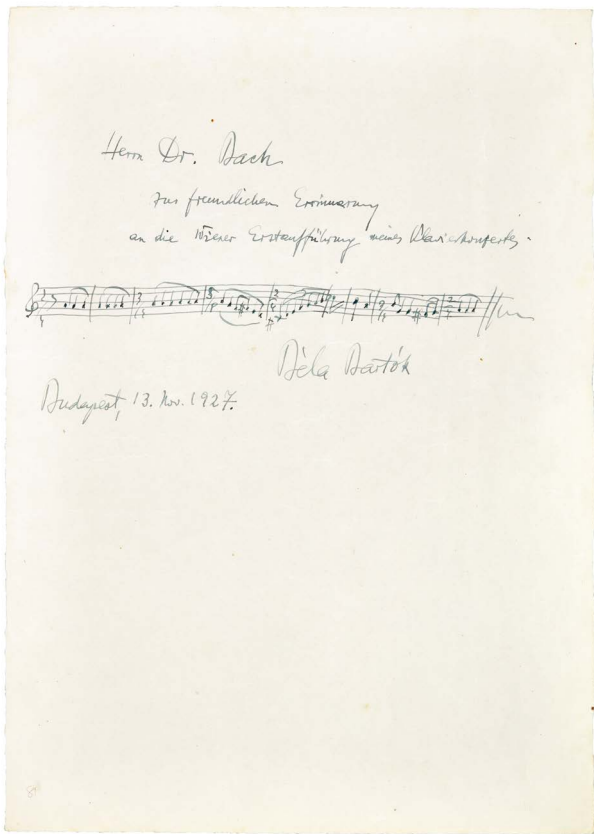 Herrn Dr. Bach
zur freundlichen Erinnerung
an die Wiener Erstaufführung meines Klavierkonzertes.
Béla Bartók
Budapest, 13. Nov. 1927.